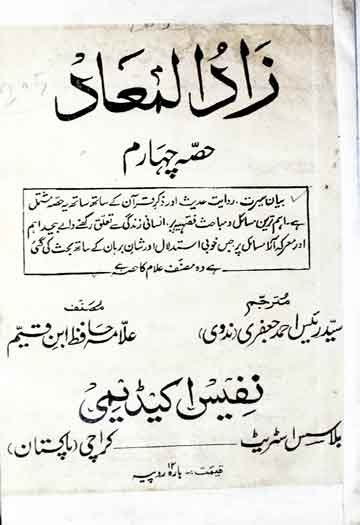 زاد المعاد
حصہ چہارم
بیان سیرت، روایت حدیث اور ذکر قرآن کے ساتھ ساتھ یہ حصہ مشتمل
ہے۔ اہم ترین مسائل و مباحث فقہیہ پر، انسانی زندگی سے تعلق رکھنے والے بیحد اہم
اور معرکہ آلآرا مسائل پر جس خوبی استدلال اور شان برہان کے ساتھ بحث کی گئی
ہے وہ مصنف علام کا حصہ ہے
مترجم
سید رئیس احمد جعفری (ندوی)
مصنف
علامہ حافظ ابن قیم
نفیس اکیڈیمی
بلاسس اسٹریٹ ــــــ کراچی (پاکستان)
قیمت :۔ بارہ ۱۲ روپیہ